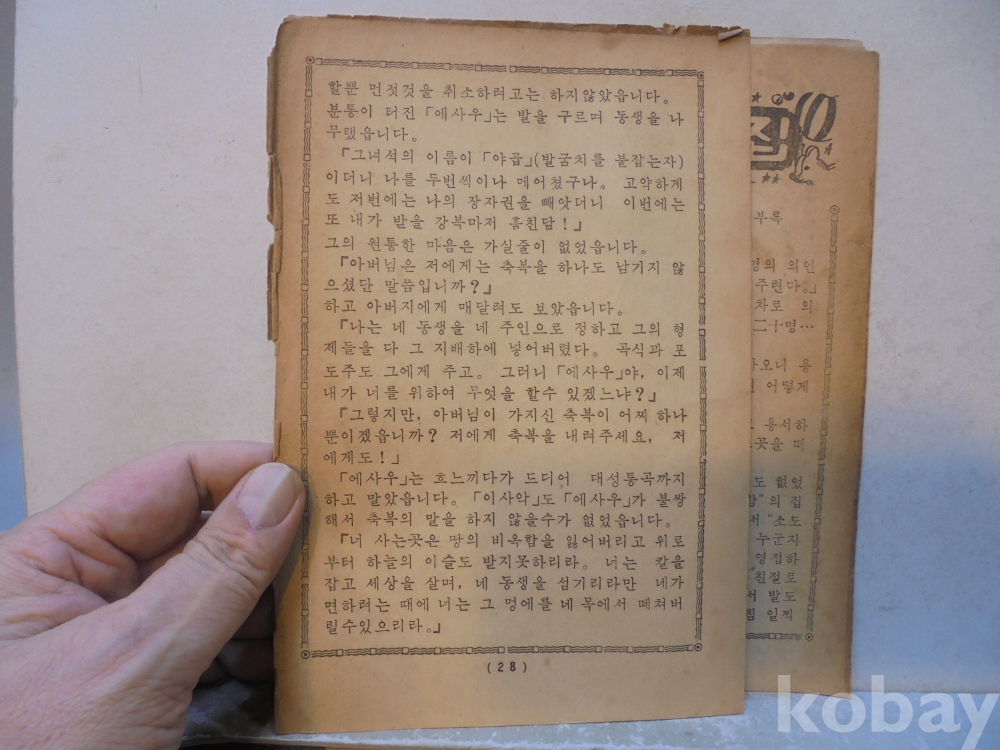 할뿐 먼젓것을 취소하려고는 하지않았읍니다。
분통이 터진 「에사우」는 발을 구르며 동생을 나
무랬읍니다。
『그녀석의 이름이 「야곱」(발굼치를 붙잡는자)
이더니 나를 두번씩이나 메어쳤구나。 고약하게
도 저번에는 나의 장자권을 빼앗더니 이번에는
또 내가 받을 강복마저 훔친담!』
그의 원통한 마음은 가실줄이 없었읍니다。
『아버님은 저에게는 축복을 하나도 남기지 않
으셨단 말씀입니까?』
하고 아버지에게 매달려도 보았읍니다。
『나는 네 동생을 네 주인으로 정하고 그의 형
제들을 다 그 지배하에 넣어버렸다。 곡식과 포
도주도 그에게 주고。 그러니 「에사우」야, 이제
내가 너를 위하여 무엇을 할수 있겠느냐?』
『그렇지만, 아버님이 가지신 축복이 어찌 하나
뿐이겠읍니까? 저에게 축복을 내려주세요, 저
에게도!』
「에사우」는 흐느끼다가 드디어 대성통곡까지
하고 말았읍니다。 「이사악」도 「에사우」가 불쌍
해서 축복의 말을 하지 않을수가 없었읍니다。
『너 사는곳은 땅의 비옥함을 잃어버리고 위로
부터 하늘의 이슬도 받지못하리라。 너는 칼을
잡고 세상을 살며, 네 동생을 섬기리라만 네가
면하려는 때에 너는 그 멍에를 네 목에서 떼쳐버
릴수있으리라。』
(28)
부록
의인
주린다。」
차로 의
二十명…
아오니 용
어떻게
용서하
곳을 떠
도 없었
함"의 집
서 "소도
누군지
영접하
친절로
서 발도
침 일찍
kobay